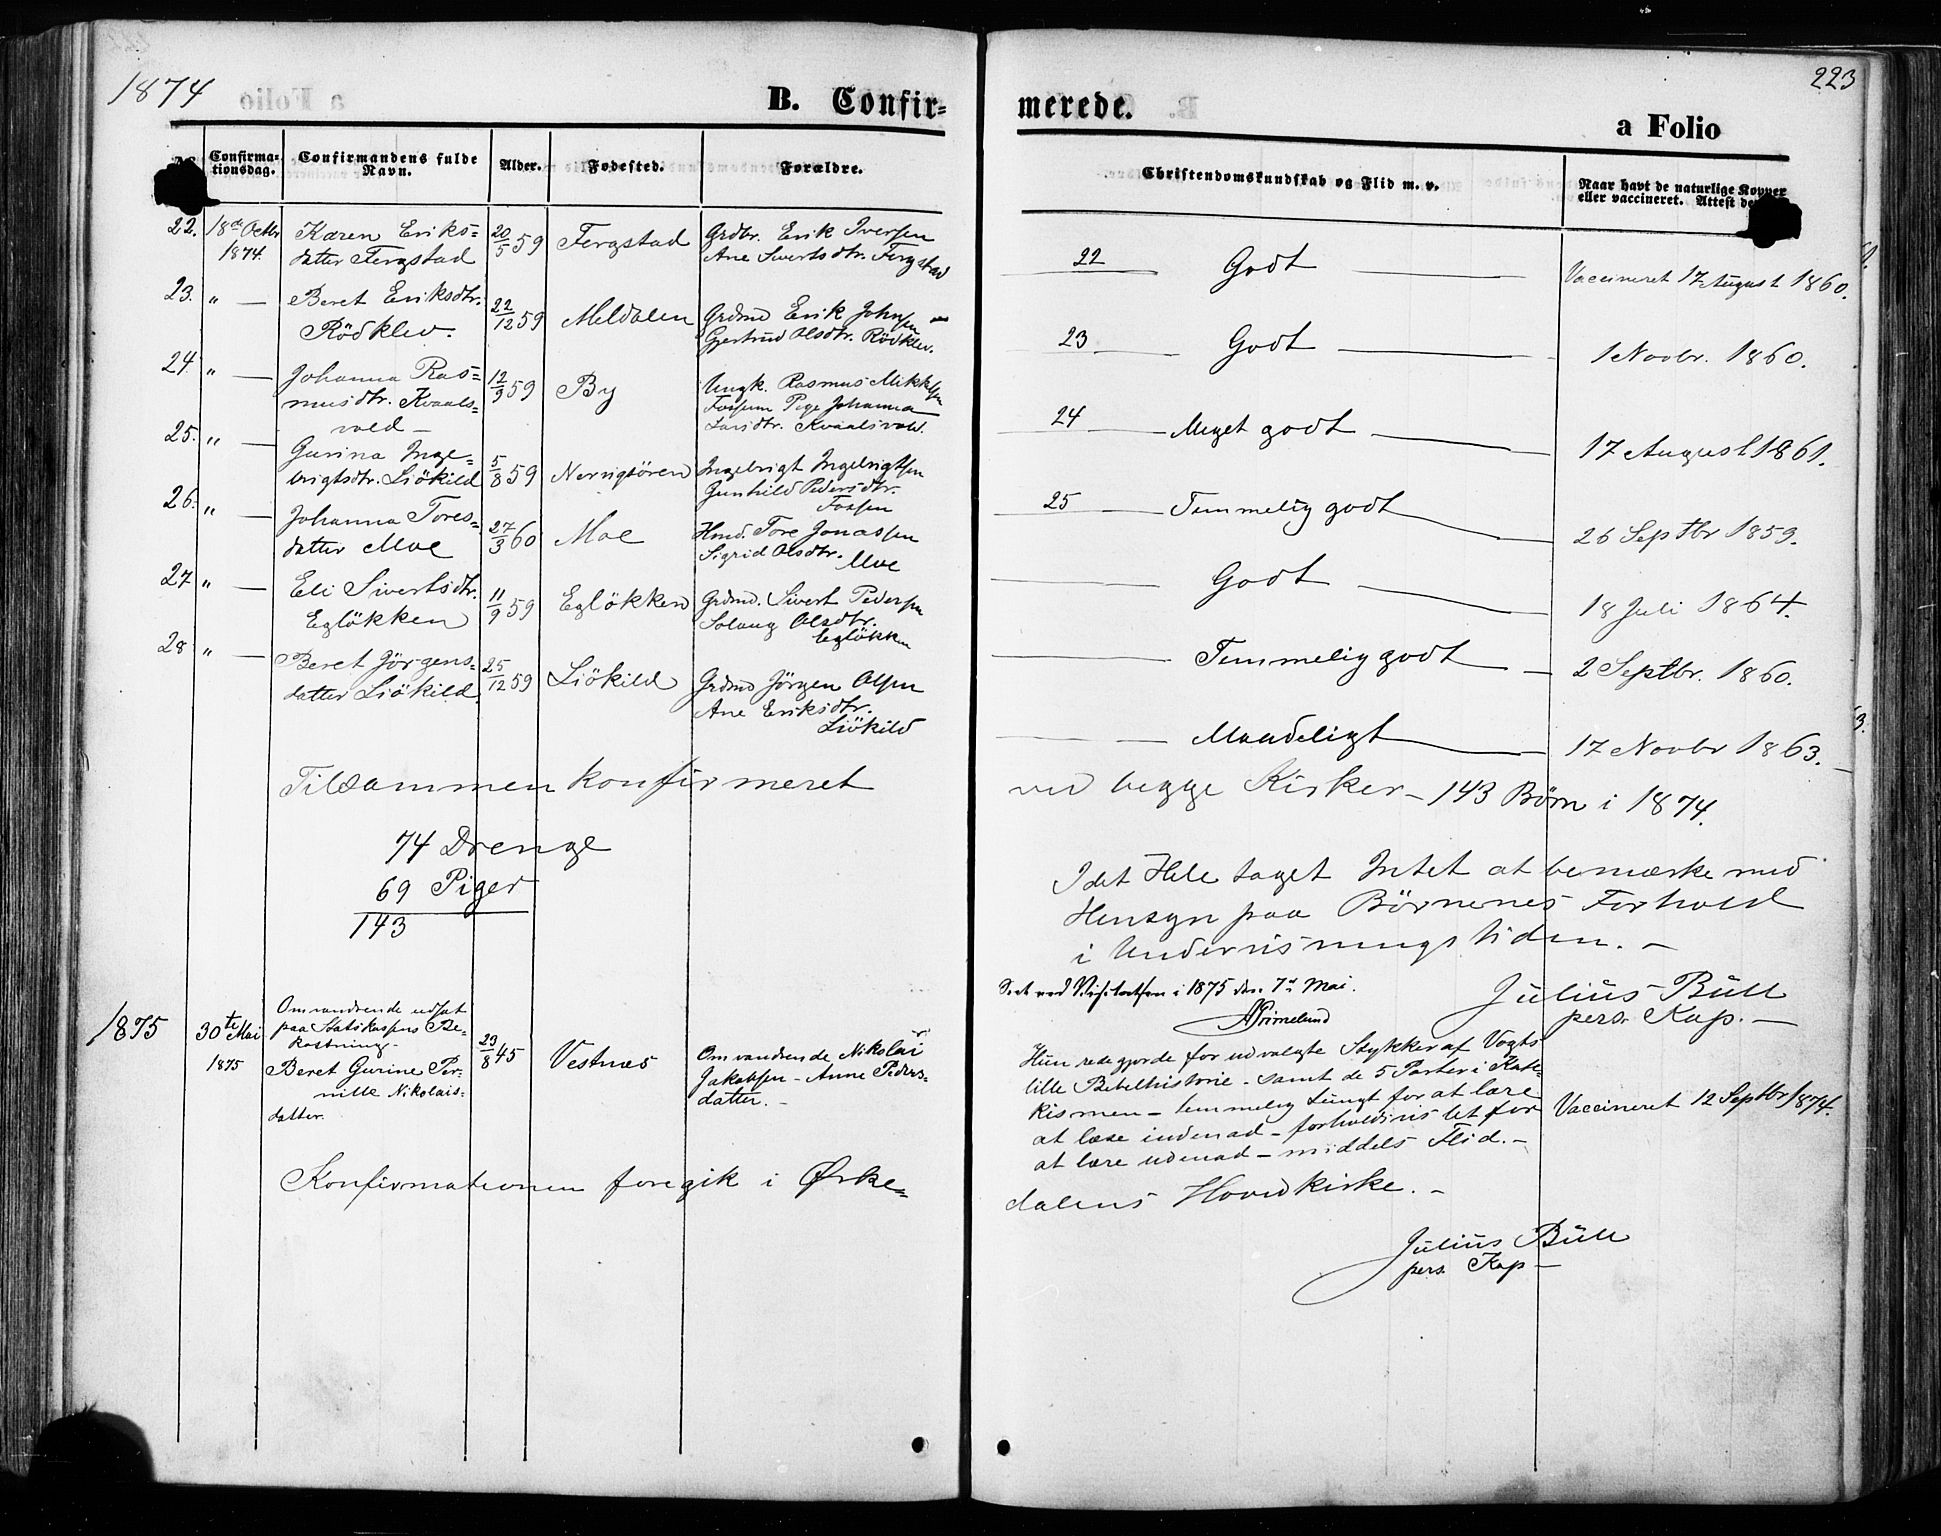 1874
B. Confir=
No.
Confirma-
tionsdag.
Confirmandens fulde
Navn.
Alder.
Fødested.
Forældre.
22. 18de Octbr Karen Eriks= 20/5 59 Fergstad Grdbr. Erik Iversen
1874. datter Fergstad Ane Sivertsdtr. Fergstad
23. " — Beret Eriksdtr. 22/12 59 Meldalen Grdmd Erik Johnsen
Rödklev. Gjertrud Olsdtr. Rödklev.
24. " — Johanna Ras= 12/9 59 By Ungk. Rasmus Mikkelsen
musdtr. Kvaals= Fossum Pige Johanna
vold — Larsdtr. Kvaalsvold.
25. " — Gurina Inge= 5/8 59 Nervigsören Ingebrigt Ingebrigtsen
brigtsdtr. Liökild Gunhild Pedersdtr.
Fossen
26. " — Johanna Tores= 27/3 60 Moe Hmd. Tore Jonassen
datter Moe Sigrid Olsdtr.
Moe
27 " — Eli Sivertsdtr. 11/9 59 Eglökken Grdmd. Sivert Pedersen
Eglökken Solaug Olsdtr.
Eglökken
28 " — Beret Jörgens= 25/12 59 Liökild Grdmd Jörgen Olsen
datter Liökild. Ane Eriksdtr.
Liökild
Tilsammen konfirmeret
74 Drenge
69 Piger
143
1875 30te Mai 1875
Omvandrende udsat
paa Statskassens Be-
kostning.
Beret Gurine Per-
nille Nikolais-
datter.
23/8 45 Vestnes
Omvandrende Nikolai
Jakobsen – Anne Peders-
datter. –
Konfirmationen foregik i Ørke=
223
merede.
a Folio
Christendomskundskab og Flid m. v.
Naar havt de naturlige Kopper
eller vaccineret. Attest
22 — Godt — Vaccineret 17 August 1860.
23 — Godt — 1 Novbr. 1860.
24 — Meget godt — 17 August 1861.
25 — Temmelig godt — 26 Septbr 1859.
— Godt — 18 Juli 1864.
— Temmelig godt — 2 Septbr. 1860.
— Maadeligt — 17 Novbr 1863.
ved begge Kirker – 143 Børn i 1874.
I det Hele taget Intet at bemærke med
Hensyn paa Börnenes Forhold
i Undervisningstiden. –
Julius Büll
pers. Kap. –
Seet ved Visitatsen i 1875 den 7de Mai.
Grimelund
Hun redegjorde for udvalgte Stykker af Vogts
lille Bibelhistorie – samt de 5 Parter i Kate-
kismen – temmelig tungt for at lære
at læse indenad – forholdsvis let for
at lære udenad – middels Flid. –
Vaccineret 12 Septbr 1874.
dalens Hovedkirke. –
Julius Büll
pers. Kap –